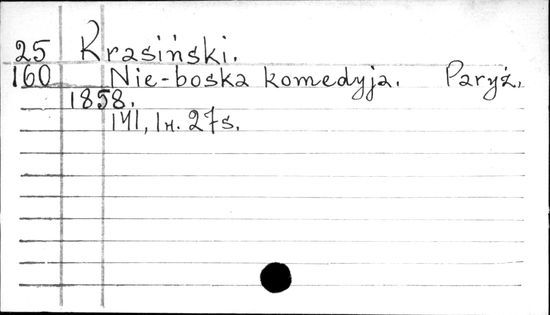 25 Krasiński.
160 Nie-boska komedyja. Paryż,
1858.
141, 1н. 27s.